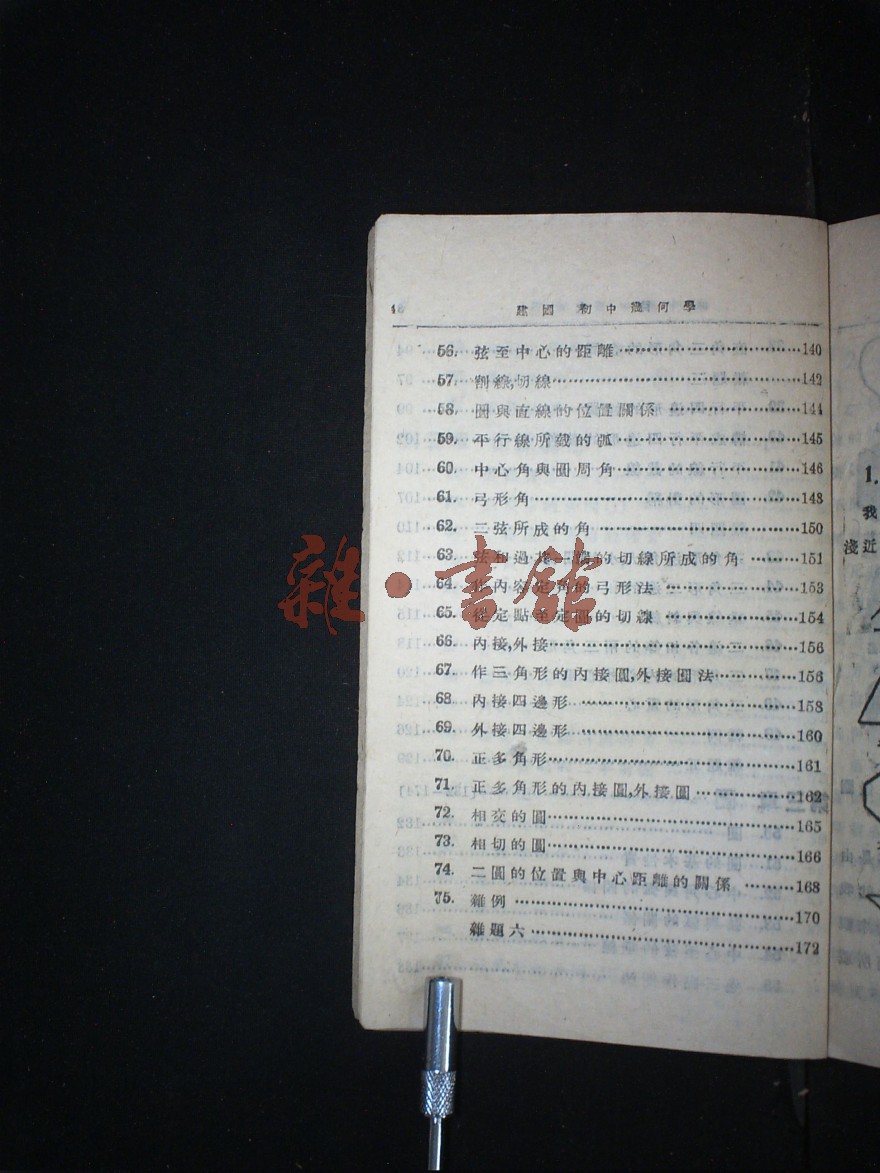 4 建國 初中幾何學
56. 弦至中心的距離 140
57. 割線,切線 142
58. 圓與直線的位置關係 144
59. 平行線所截的弧 145
60. 中心角與圓周角 146
61. 弓形角 148
62. 二弦所成的角 150
63. 弦和過其一端的切線所成的角 151
64. 作內容定角的弓形法 153
65. 從定點至定圓的切線 154
66. 內接,外接 156
67. 作三角形的內接圓,外接圓法 156
68. 內接四邊形 158
69. 外接四邊形 160
70. 正多角形 161
71. 正多角形的內接圓,外接圓 162
72. 相交的圓 165
73. 相切的圓 166
74. 二圓的位置與中心距離的關係 168
75. 雜例 170
雜題六 172
1.
我
淺近
雜·書館